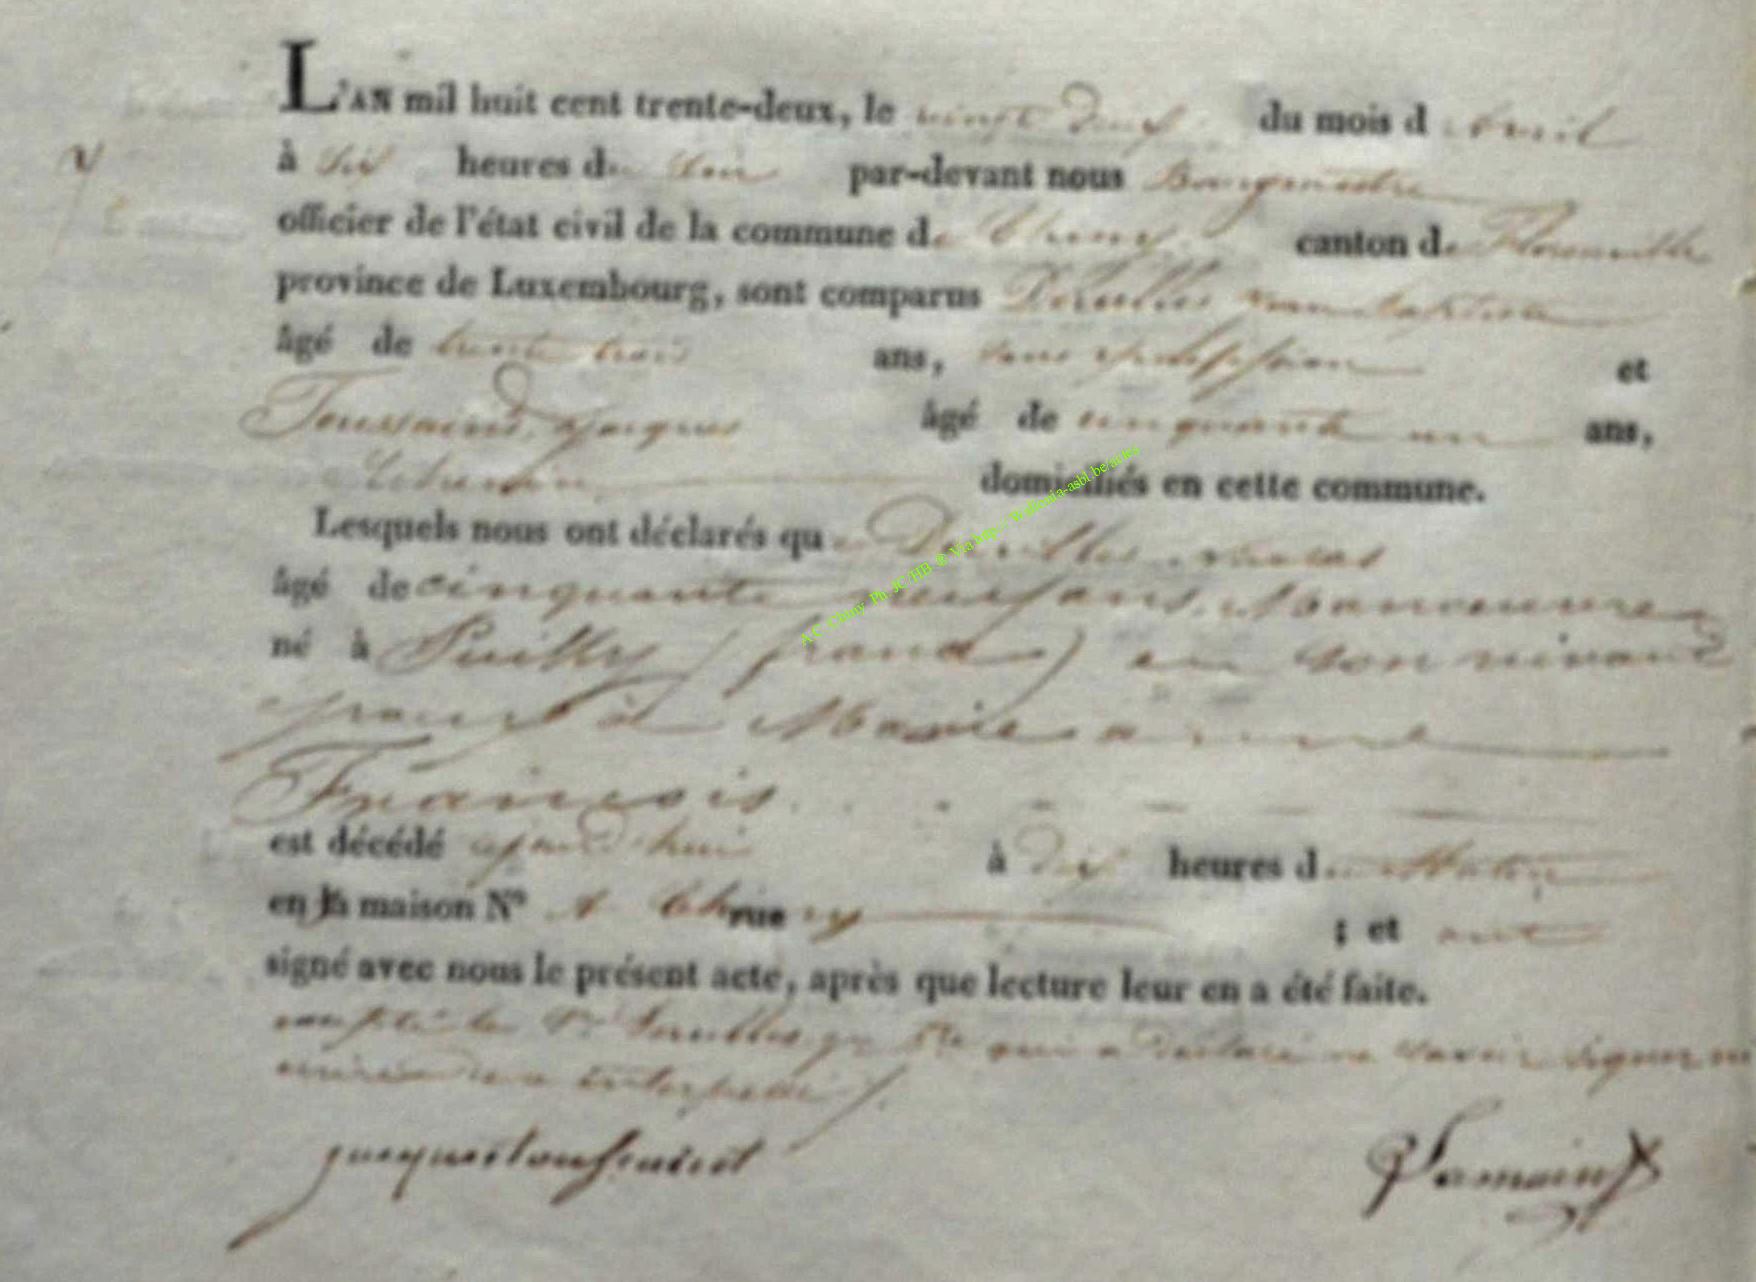 L'AN mil huit cent trente-deux, le vingt deux du mois d avril
à six heures du soir par-devant nous Bourgmestre
officier de l'état civil de la commune de Chiny canton de Florenville
province de Luxembourg, sont comparus jean baptiste
âgé de trente trois ans, sans profession et
Toussaint jacques âgé de cinquante un ans,
domiciliés en cette commune.
Lesquels nous ont déclarés que nicolas
âgé de cinquante neuf ans, Manoeuvre
né à Puilly (france) en son vivant
epoux à Marie anne
François
est décédé à dix heures du Matin
en la maison N° A Chiny rue ; et ont
signé avec nous le présent acte, après que lecture leur en a été faite.
excepté le Sr qui a déclaré ne savoir signer
interpellé
jacques toussaint
A C Chiny Ph JC/HB ® Via http://wallonia-asbl.be/actes